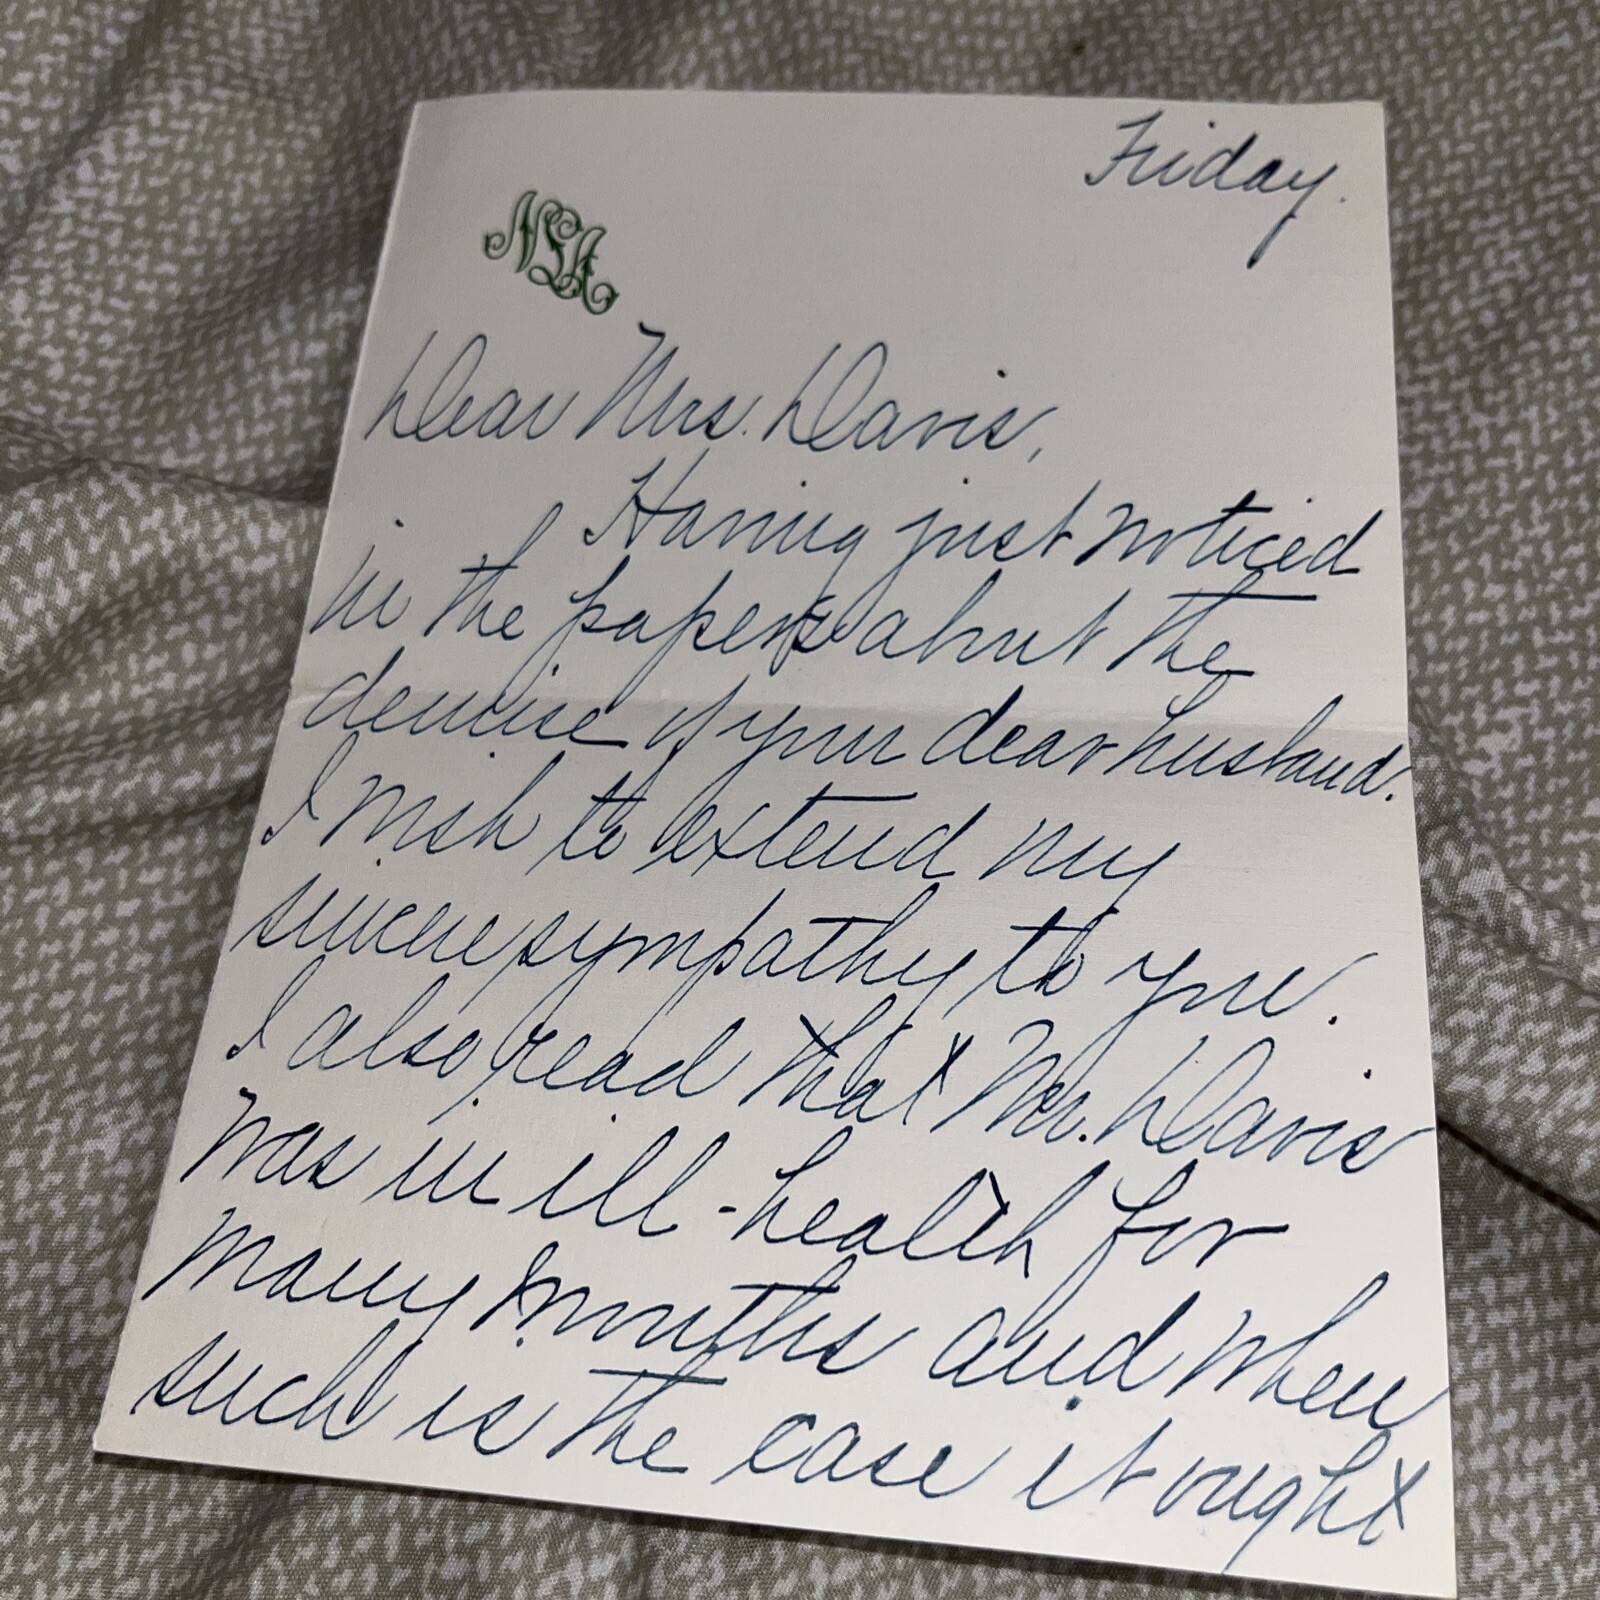 Friday.
Dear Mrs. Davis,
Having just noticed
in the papers about the
demise of your dear husband.
I wish to extend my
sincere sympathy to you.
I also read that Mr. Davis
was in ill-health for
many months and when
such is the case it ought